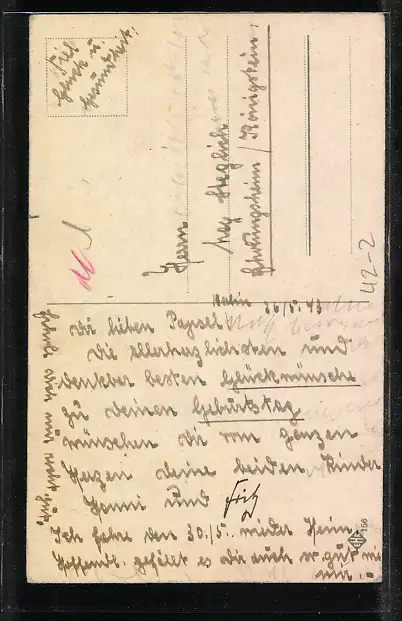 Viel
Glück u.
Gesundheit!
Herrn
Max Steglich
Erholungsheim / Königstein
42-2
26/5. 43
Dir lieben Papsel
die allerherzlichsten und
denkbar besten Glückwünsche
zu deinen Geburtstag
wünschen dir von ganzen
Herzen deine beiden Kinder
Henni und Fritz
Ich fahre den 30./5. wieder Heim.
Hoffendl. gefält es Dir auch so gut wie
mir.
166